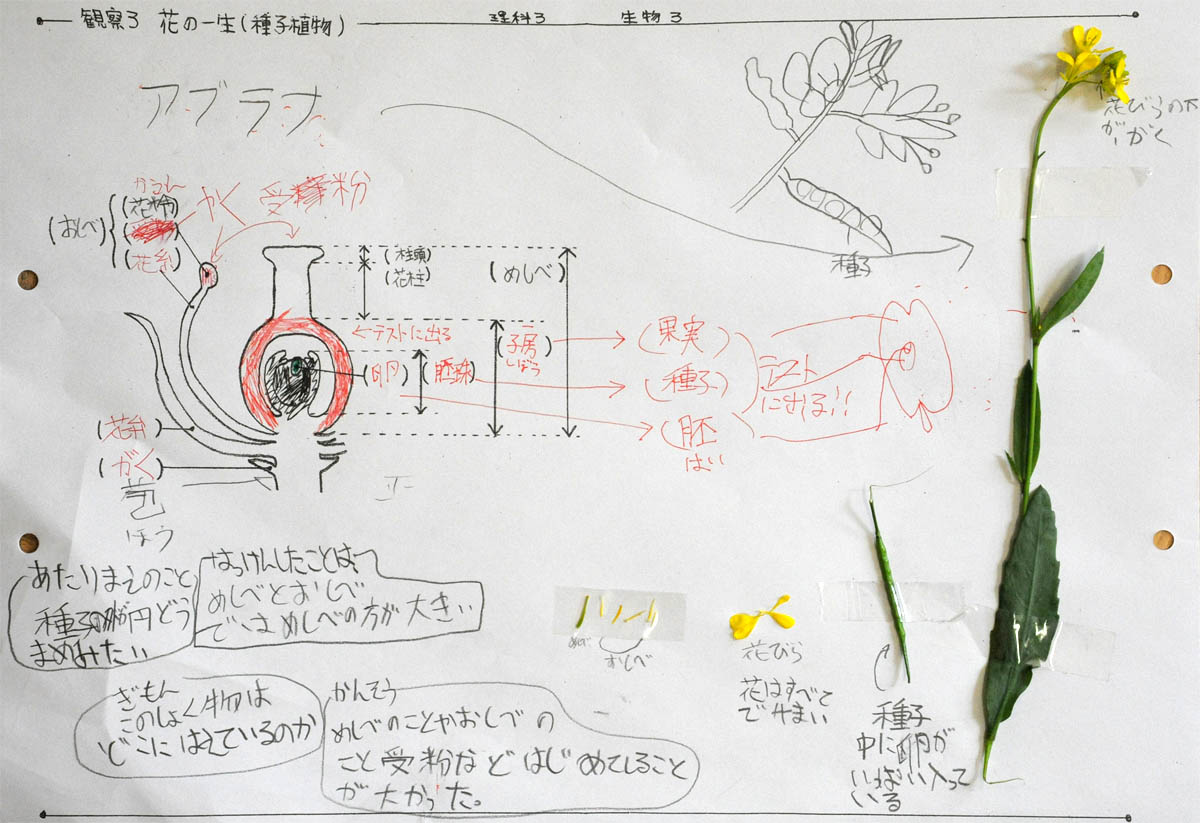 観察3 花の一生(種子植物)
理科3 生物3
アブラナ
花びらの下
が、がく
種子
かふん
(おしべ)
(花粉)
(花糸)
がく
受粉
(柱頭)
(花柱)
(めしべ)
←テストに出る
(子房)
しぼう
(卵)
(胚珠)
(果実)
(種子)
(胚
はい
テスト
に出る!!
(花弁)
(がく)
苞
ほう
あたりまえのこと
まめみたい
はっけんしたことは、
めしべとおしべ
では めしべの方が大きい
ぎもん
このしょく物は
どこにはえているのか
かんそう
めしべのことやおしべの
こと受粉などはじめてしること
が大かった。
めしべ
おしべ
花びら
花はすべて
で4まい
種子
中に卵が
いっぱい入って
いる